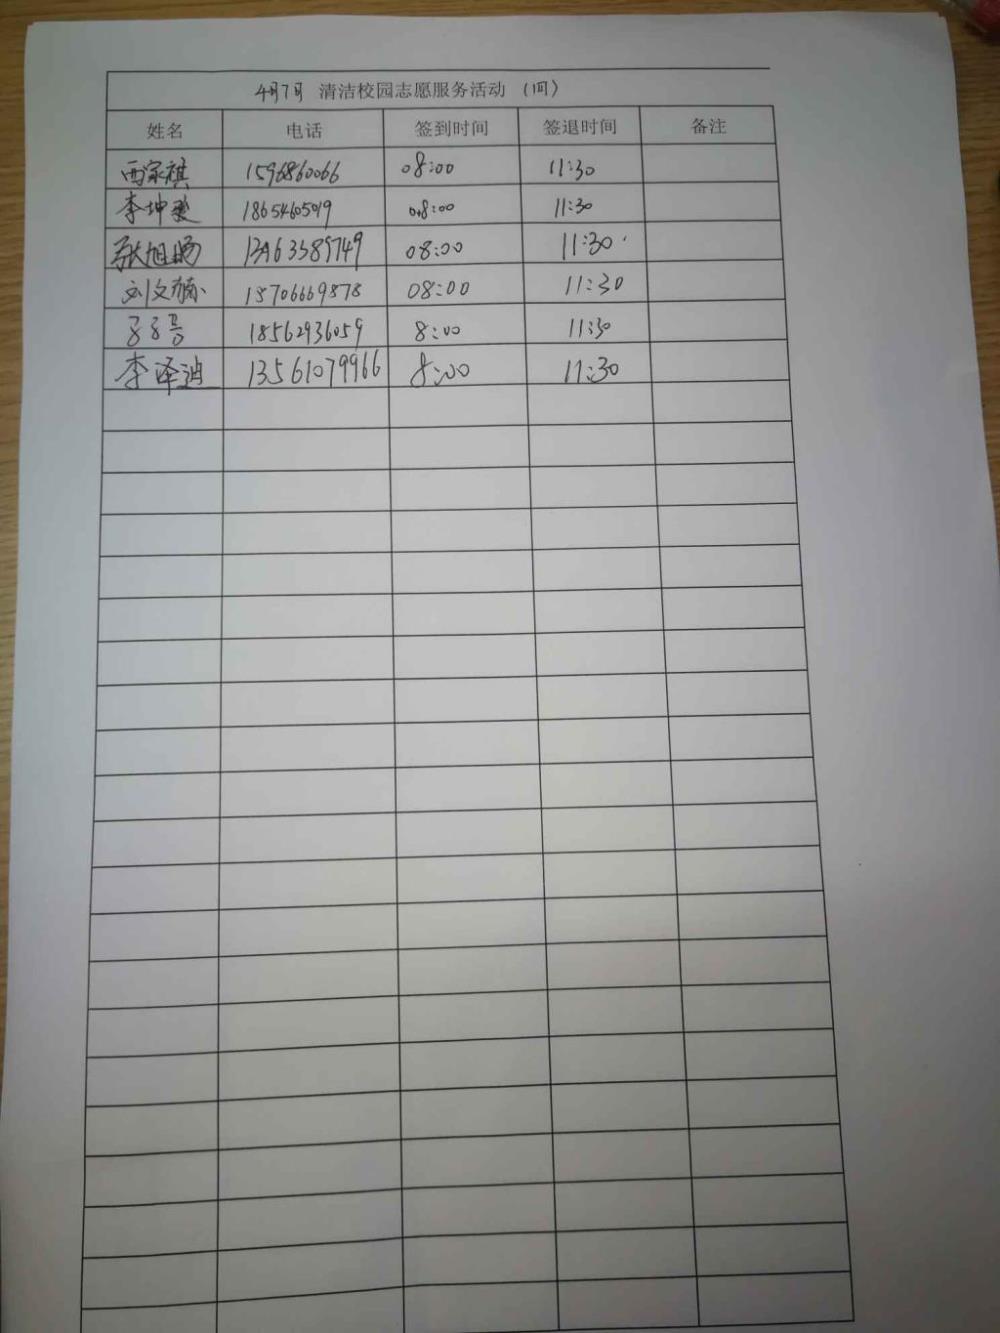 4月7日 清洁校园志愿服务活动 (四)
姓名 电话 签到时间 签退时间 备注
西家祺 1596860066 08:00 11:30
李坤 18654605019 08:00 11:30
张旭旸 08:00 11:30
刘文楠 15706669878 08:00 11:30
18562936059 8:00 11:30
李泽迪 13561079966 8:00 11:30